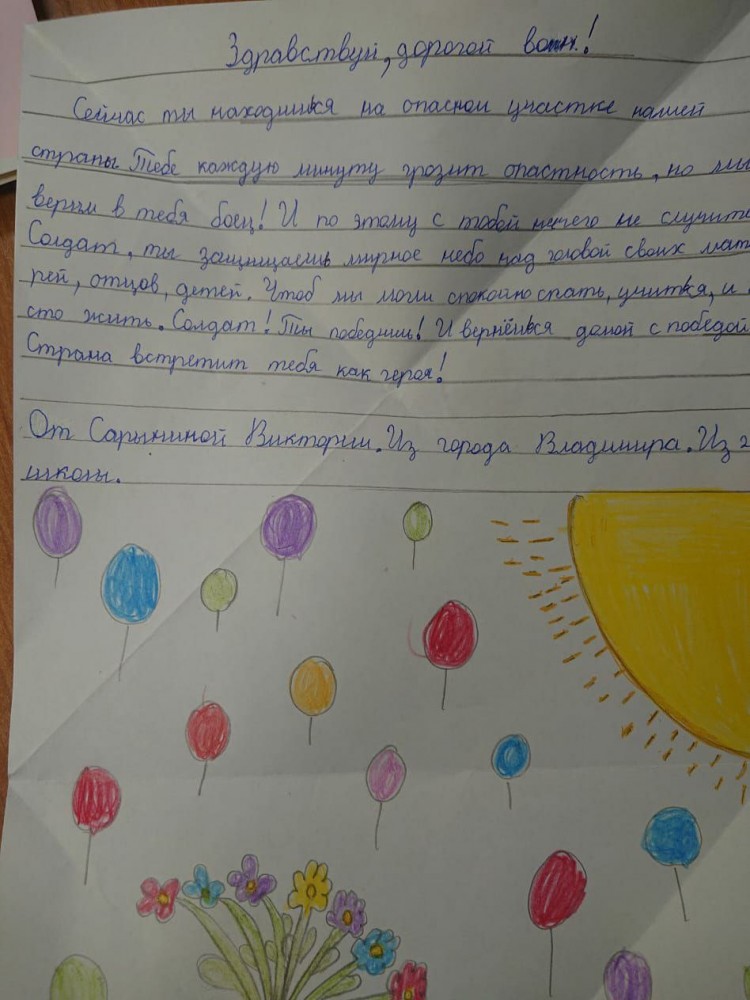 Здравствуй, дорогой воин!
Сейчас ты находишься на опасном участке нашей
страны. Тебе каждую минуту грозит опастность, но мы
верим в тебя боец! И по этому с тобой ничего не случит
Солдат, ты защищаешь мирное небо над головой своих мат
рей, отцов, детей. Чтоб мы могли спокойно спать, учиться, и
сто жить. Солдат! Ты победишь! И вернёшься домой с победой
Страна встретит тебя как героя!
От Сарыниной Виктории. Из города Владимира. Из 2
школы.